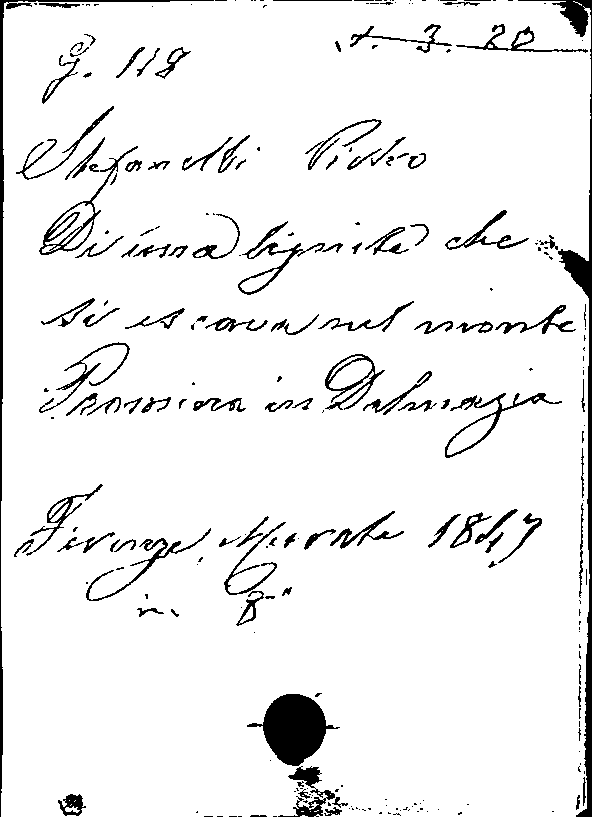 G. 118
A. 3. 20
Stefanelli Pietro
Di una lignite che
si escava nel monte
Promina in Dalmazia
Firenze, Murate 1847
in 8°